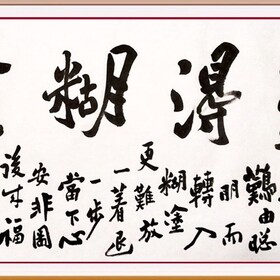 得糊
難由聰
明而
轉入
糊塗
更難放
一着退
一步
當下心
安非圖
後来福